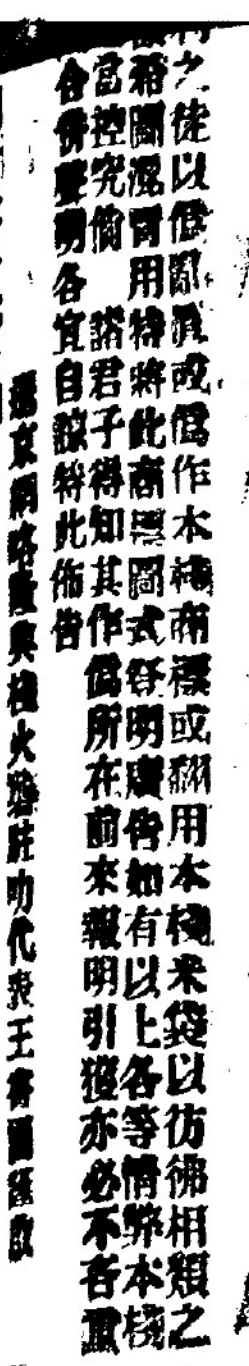 之徒以僞亂眞或僞作本棧商標或翻用本棧米袋以彷彿相類之
圖混冒用特將此商標圖式登明廣告如有以上各等情弊本棧
當控究倘 諸君子得知其作僞所在前來報明引獲亦必不吝
合併聲明各宜自諒特此佈告
暹京 隆興棧火礱駐叻代表王 謹啟